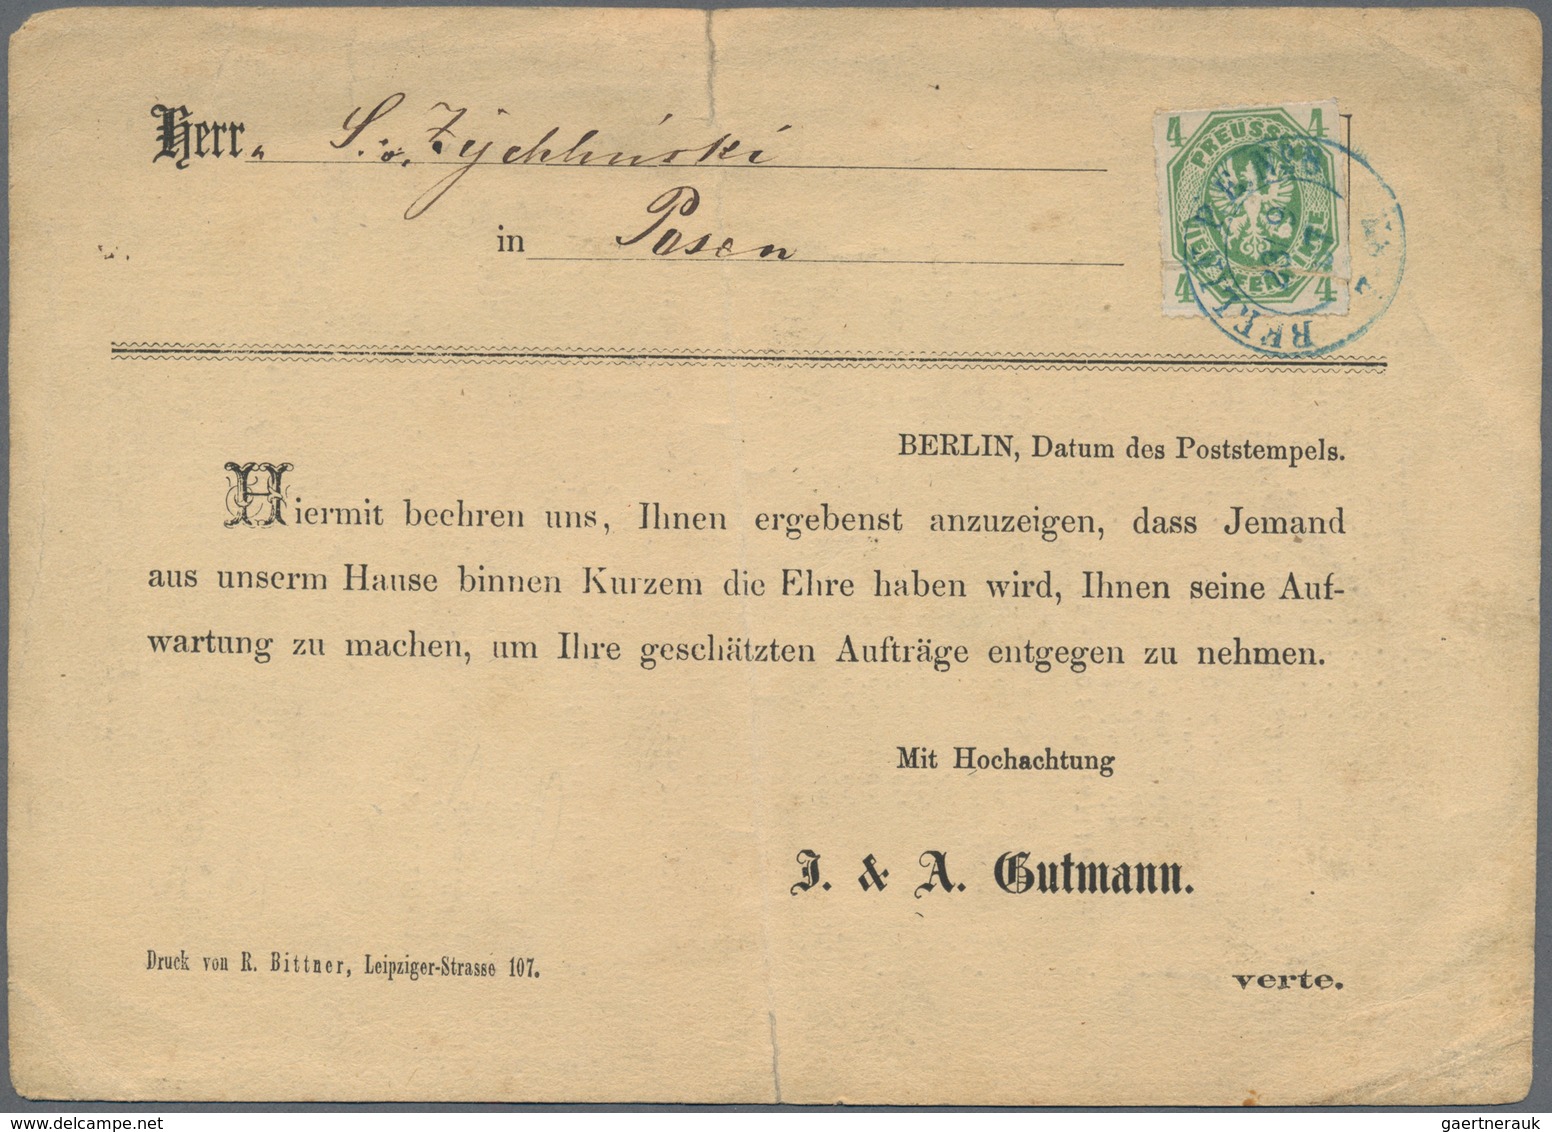 Herrn S. v. Zychlinski
in Posen
4 4
PREUSSEN
4 4
BERLIN, Datum des Poststempels.
Hiermit beehren uns, Ihnen ergebenst anzuzeigen, dass Jemand
aus unserm Hause binnen Kurzem die Ehre haben wird, Ihnen seine Auf-
wartung zu machen, um Ihre geschätzten Aufträge entgegen zu nehmen.
Mit Hochachtung
J. & A. Gutmann.
Druck von R. Bittner, Leipziger-Strasse 107.
verte.
gaertnerauk